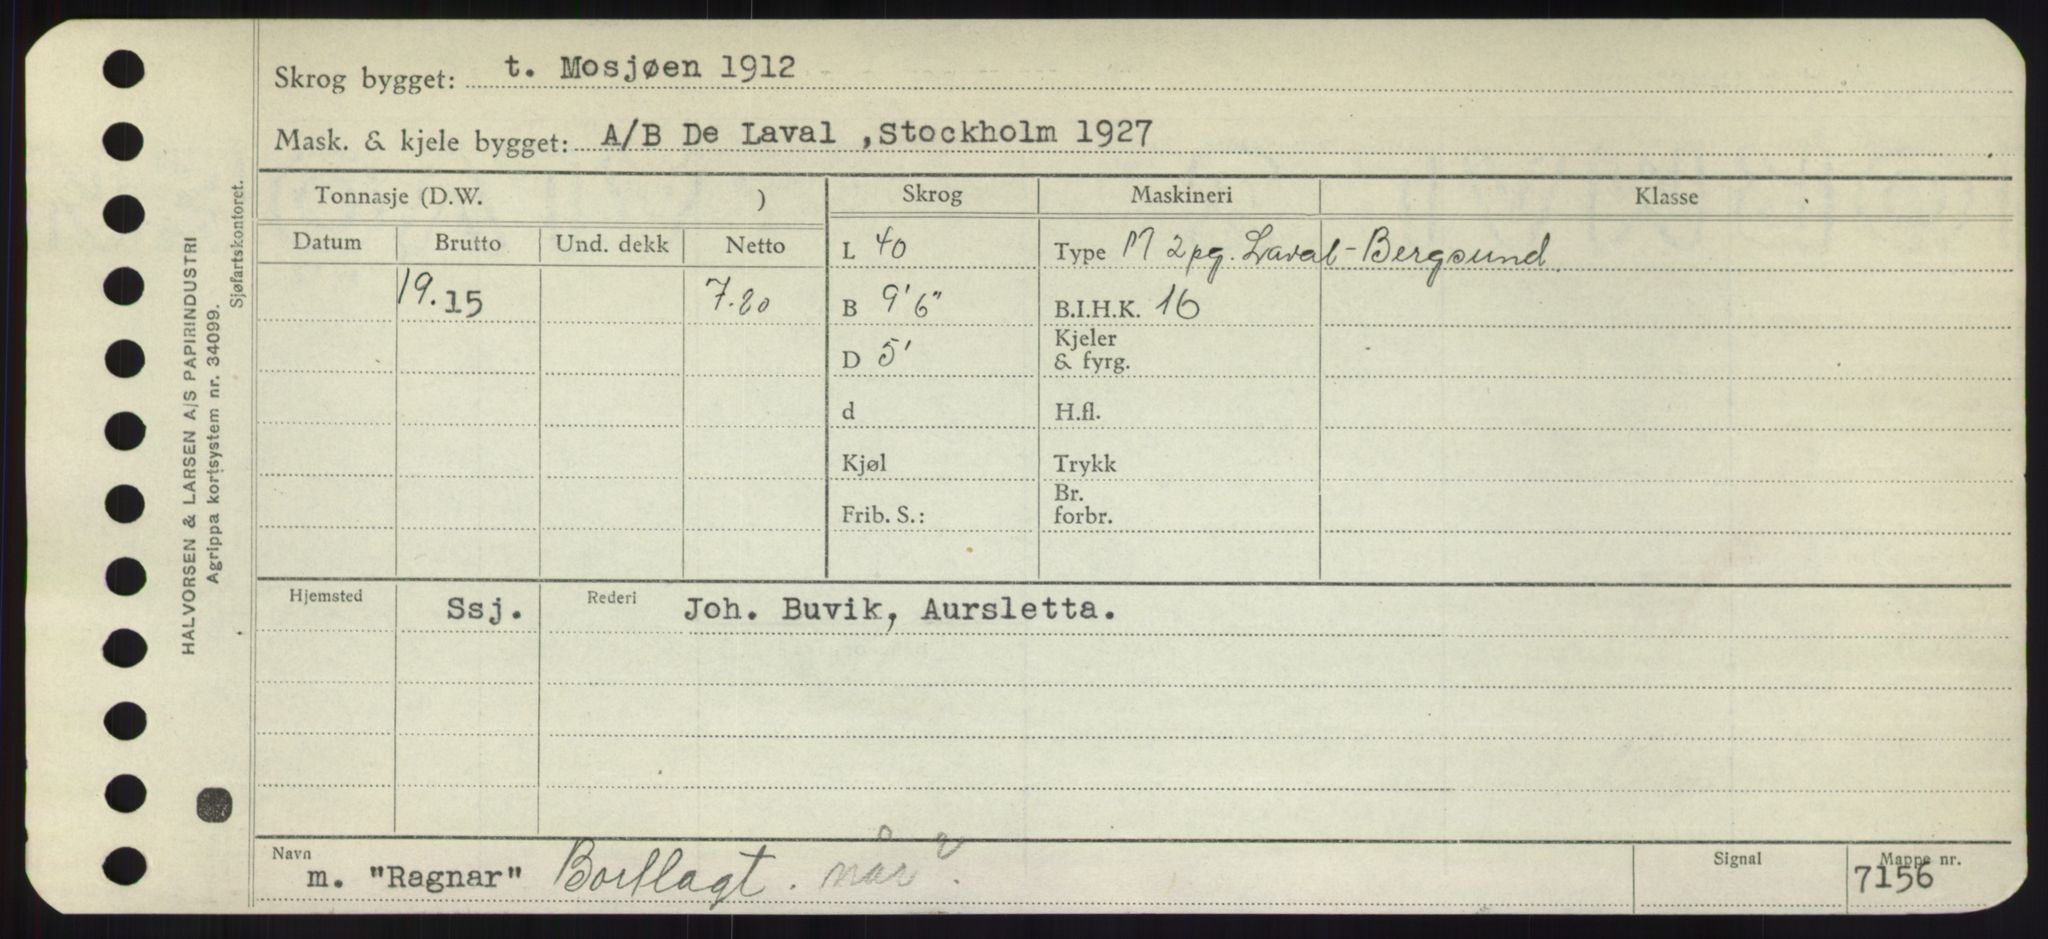 Skrog bygget: t. Mosjøen 1912
Mask. & kjele bygget: A/B De Laval ,Stockholm 1927
Tonnasje (D.W. ) Skrog Maskineri Klasse
Datum Brutto Und. dekk Netto L 40 Type M 2pg. Laval-Bergsund.
19.15 7.80 B 9'6" B.I.H.K. 16
D 5' Kjeler
& fyrg.
d H.fl.
Kjøl Trykk
Br.
Frib. S.: forbr.
Hjemsted Ssj. Rederi Joh. Buvik, Aursletta.
Navn Signal Mappe nr.
m. "Ragnar" Bortlagt. når? 7156
HALVORSEN & LARSEN A/S PAPIRINDUSTRI
Agrippa kortsystem nr. 34099.
Sjøfartskontoret.